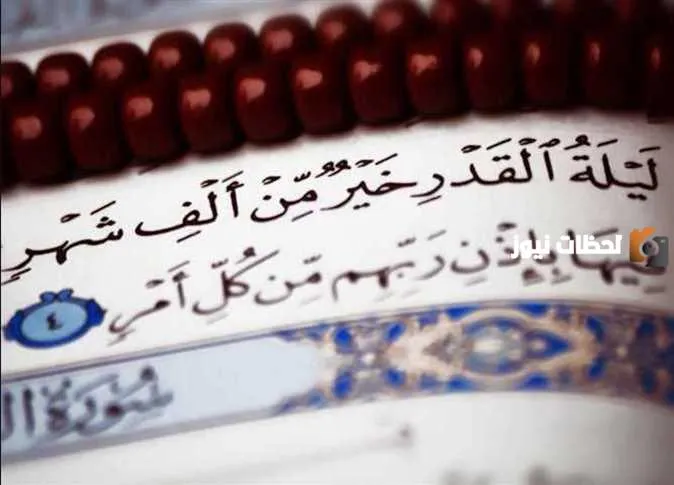 لَيْلَةُ ٱلْقَدْرِ خَيْرٌ مِّنْ أَلْفِ شَهْرٍ
فِيهَا بِإِذْنِ رَبِّهِم مِّن كُلِّ أَمْرٍ ٤
لحظات نيوز
سُورَةُ